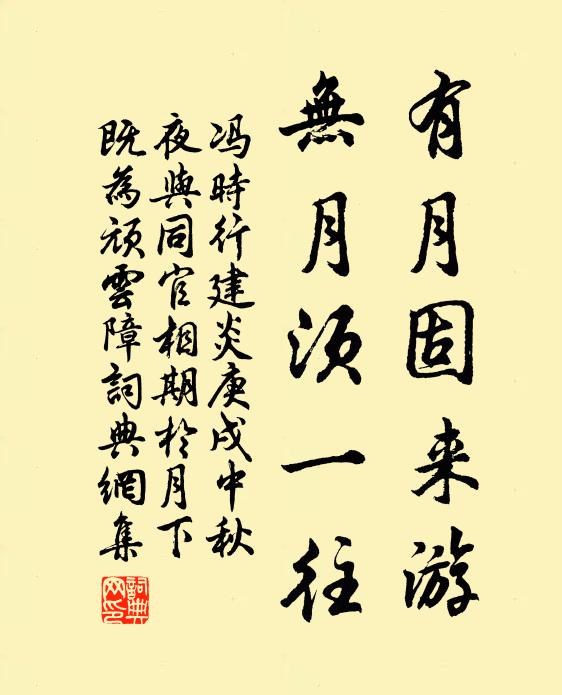 有月固来游
無月须一往
冯時行建炎庚戌中秋
夜與同官相期於月下
既為頑雲障詞典網集
詞典网印